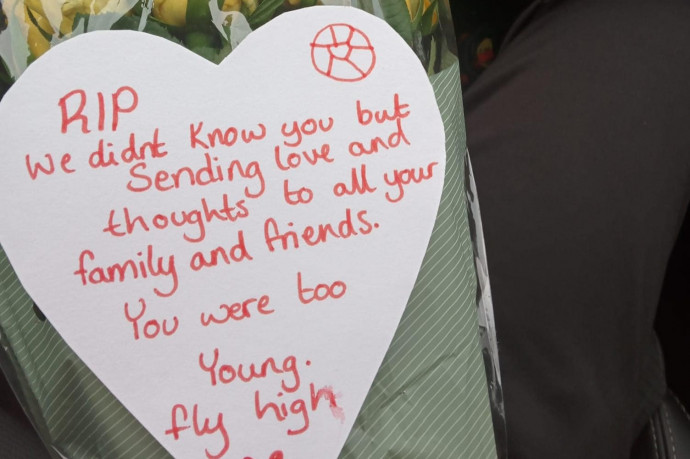 RIP
We didnt know you but
Sending love and
thoughts to all your
family and friends.
You were too
Young.
fly high